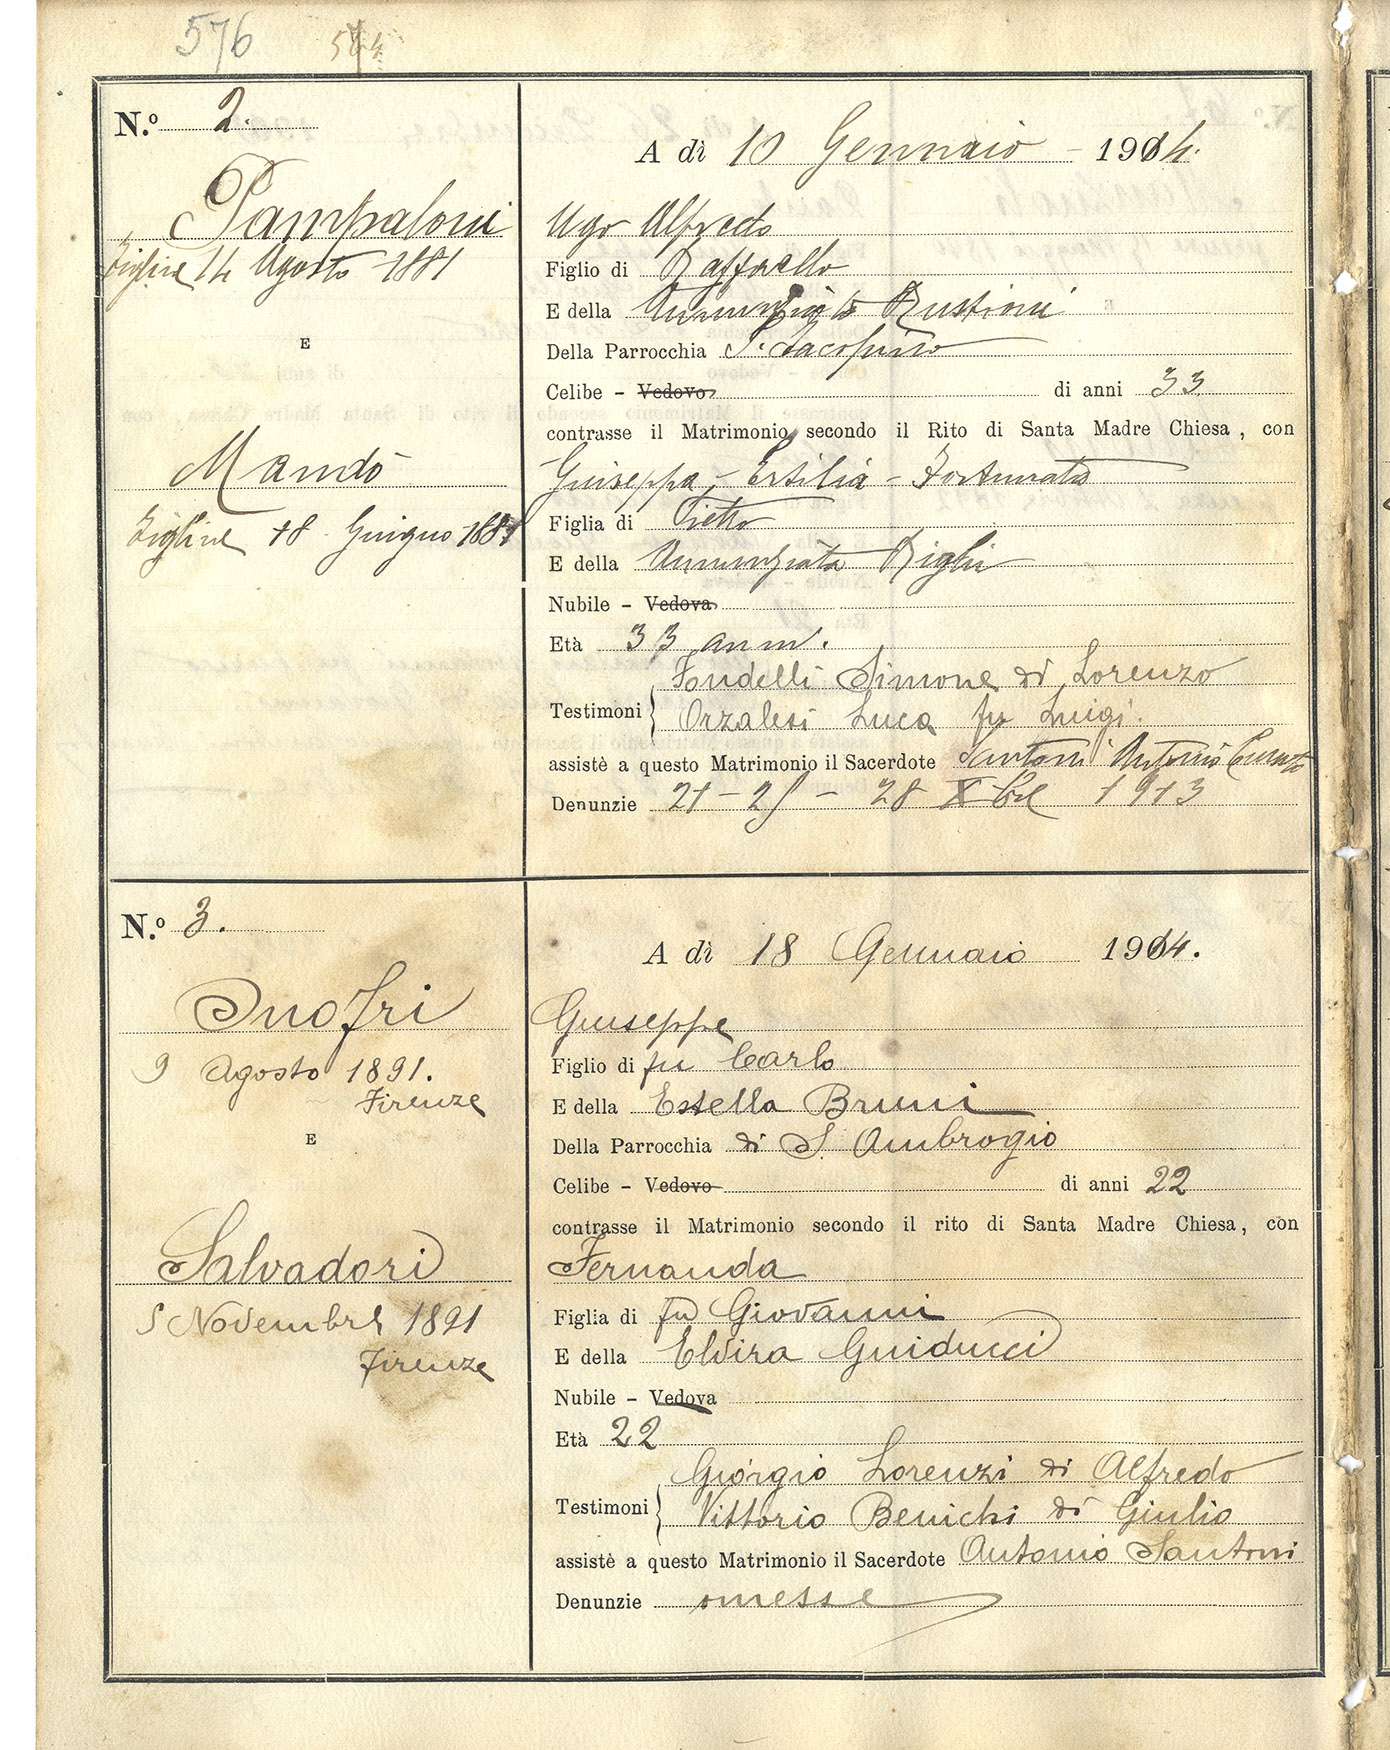 576 574
N.º 2.
A dì 10 Gennaio 1914.
Pampaloni
Figline 14 Agosto 1881
E
Mandò
Figline 18 Giugno 1881
Ugo Alfredo
Figlio di Raffaello
E della Annunziata Rustioni
Della Parrocchia S. Iacopino
Celibe - Vedovo di anni 33
contrasse il Matrimonio secondo il Rito di Santa Madre Chiesa, con
Giuseppa - Ersilia - Fortunata
Figlia di Pietro
E della Annunziata Righi
Nubile - Vedova
Età 33 anni.
Testimoni { Fondelli Simone di Lorenzo
Orzalesi Luca fu Luigi.
assistè a questo Matrimonio il Sacerdote Santoni Antonio Curato
Denunzie 21 - 25 - 28 Xbre 1913
N.º 3.
A dì 18 Gennaio 1914.
Onofri
9 Agosto 1891.
Firenze
E
Salvadori
5 Novembre 1891
Firenze
Giuseppe
Figlio di fu Carlo
E della Estella Bruni
Della Parrocchia di S. Ambrogio
Celibe - Vedovo di anni 22
contrasse il Matrimonio secondo il rito di Santa Madre Chiesa, con
Fernanda
Figlia di fu Giovanni
E della Elvira Guiducci
Nubile - Vedova
Età 22
Testimoni { Giorgio Lorenzi di Alfredo
Vittorio Benichi di Giulio
assistè a questo Matrimonio il Sacerdote Antonio Santoni
Denunzie omesse